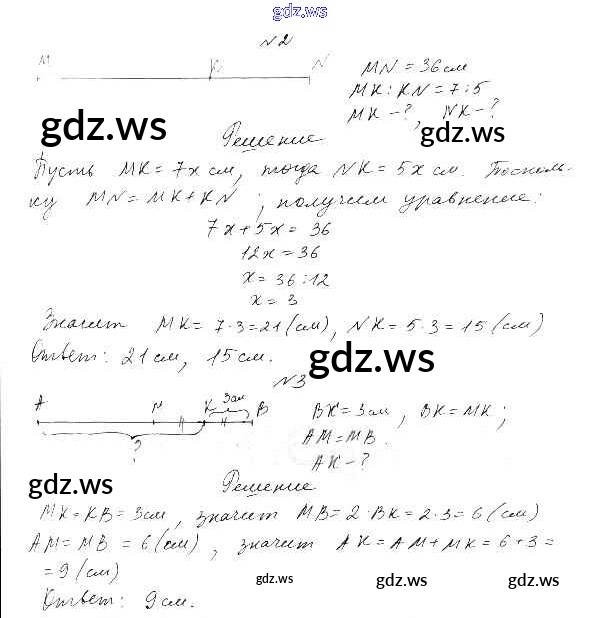 gdz.ws
N2
M K N
MN = 36 см
MK : KN = 7 : 5
MK - ?, NK - ?
gdz.ws gdz.ws
Решение
Пусть MK = 7x см, тогда NK = 5x см. Посколь-
ку MN = MK + KN; получим уравнение:
7x + 5x = 36
12x = 36
x = 36 : 12
x = 3
Значит MK = 7·3 = 21 (см), NK = 5·3 = 15 (см)
Ответ: 21 см, 15 см.
gdz.ws
N3
3см
A M K B
?
BK = 3см, BK = MK;
AM = MB.
AK - ?
gdz.ws
Решение
MK = KB = 3см, значит MB = 2·BK = 2·3 = 6 (см)
AM = MB = 6 (см), значит AK = AM + MK = 6 + 3 =
= 9 (см)
gdz.ws gdz.ws gdz.ws
Ответ: 9 см.